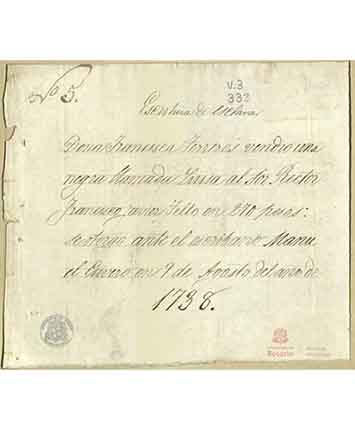 No 5.
V.3
332
Escritura de esclava
Dona Francisca Forero vendio una
negra llamada Luisa al Sor. Rector
Francisco avier Tello en 270 pesos:
se otorgo ante el escribano Manu
el Enero en 9 de Agosto del año de
1738.
Rosario